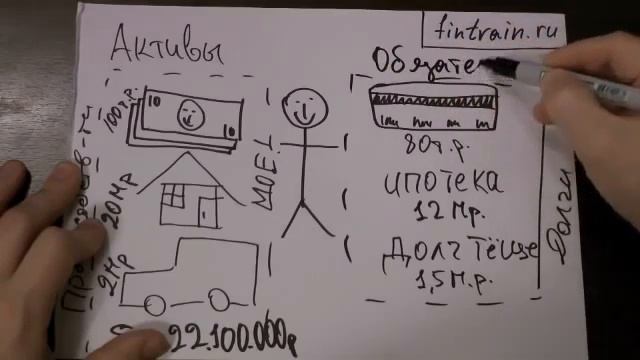 fintrain.ru
Активы
Обязате
10
10
100т.р.
МОЁ!
80т.р.
20Мр
ипотека
12 Мр.
2Мр
Долг Тёще
1,5М.р.
Долги
22.100.000р